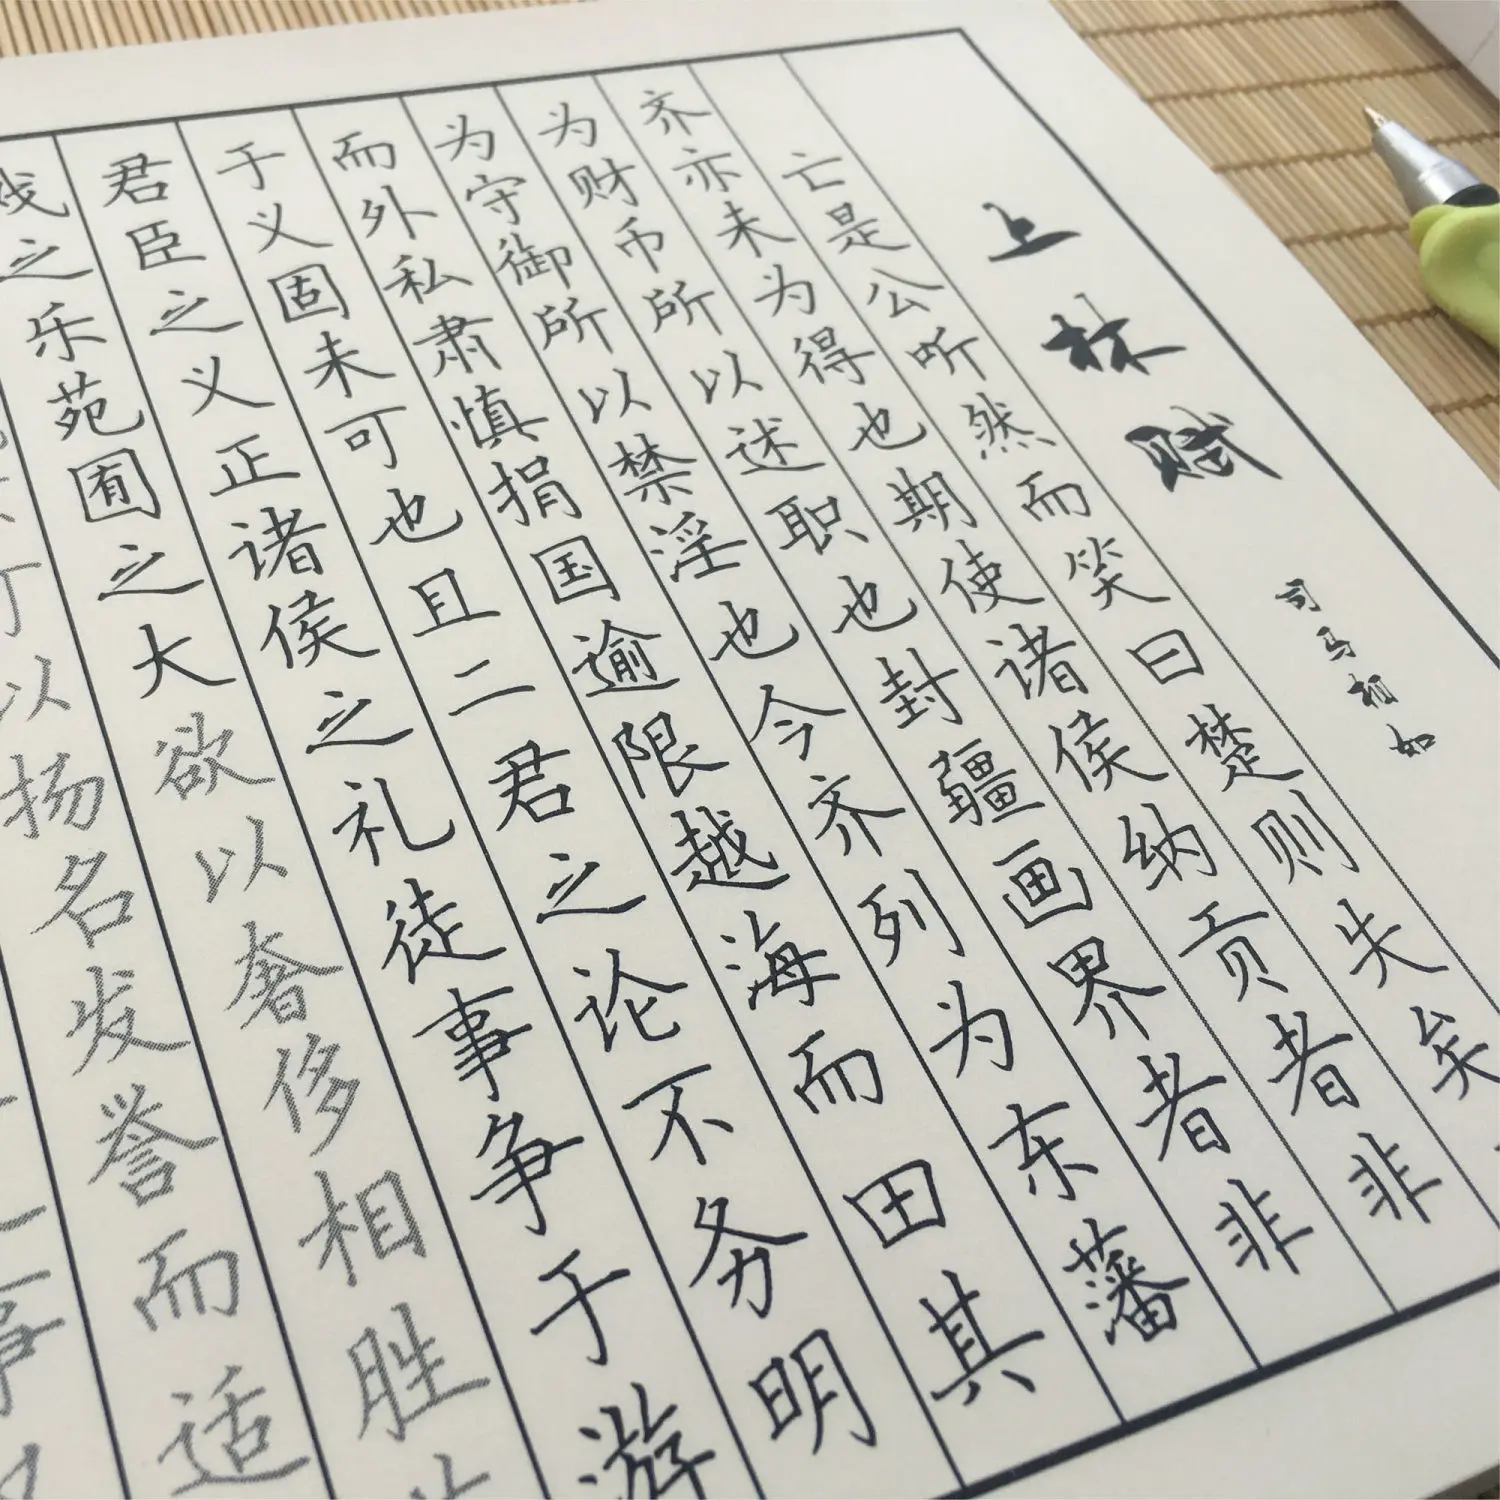 上林赋
司马相如
亡是公听然而笑曰楚则失矣
齐亦未为得也期使诸侯纳贡者非
为财币所以述职也封疆画界者非
为守御所以禁淫也今齐列为东藩
而外私肃慎捐国逾限越海而田其
于义固未可也且二君之论不务明
君臣之义正诸侯之礼徒事争于游
戏之乐苑囿之大欲以奢侈相胜
以扬名发誉而适
事